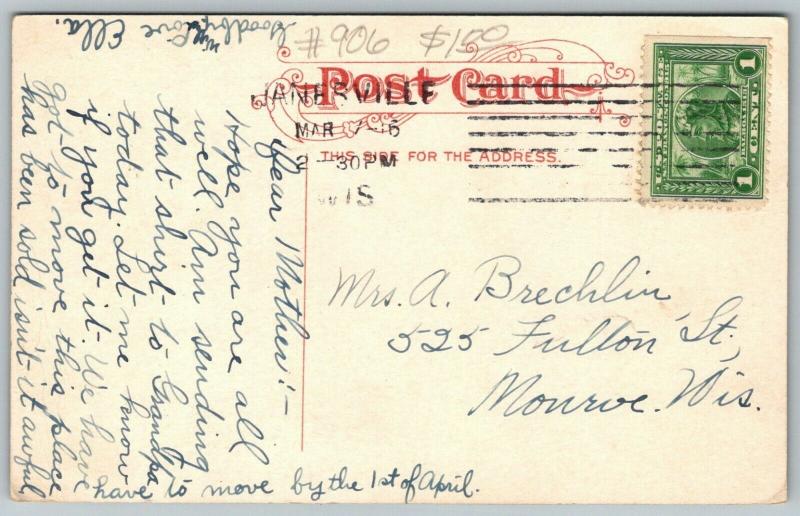 #906 $1.50
Post Card
JANESVILLE
MAR 7-16
2-30PM
WIS
THIS SIDE FOR THE ADDRESS.
1 CENT 1
Mrs. A. Brechlin,
525 Fulton St.,
Monroe. Wis.
Dear Mother:-
Hope you are all
well. Am sending
that shirt to Grandpa
today. Let me know
if you get it. We have
got to move this place
has been sold isn't it awful
have to move by the 1st of April.
Goodbye
Love
Ella.